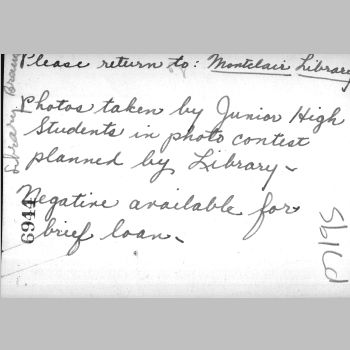 Please return to: Montclair Library
Photos taken by Junior High
Students in photo contest
planned by Library -
Negative available for
brief loan -
6944
Library